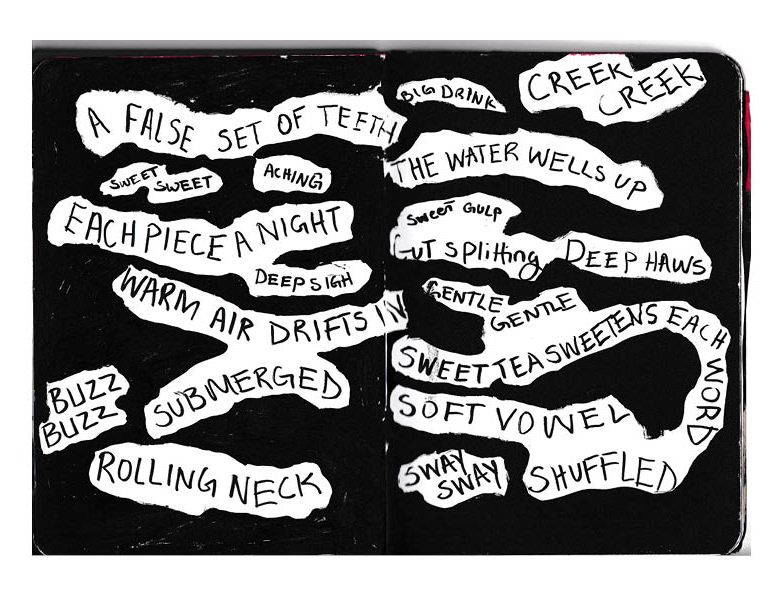 A FALSE SET OF TEETH
SWEET
SWEET
ACHING
EACH PIECE A NIGHT
DEEP SIGH
WARM AIR DRIFTS IN
SUBMERGED
BUZZ
BUZZ
ROLLING NECK
BIG DRINK
CREEK
CREEK
THE WATER WELLS UP
SWEET GULP
GUT SPlitting
DEEP HAWS
GENTLE
GENTLE
SWEET TEA SWEETENS EACH WORD
SOFT VOWEL
SHUFFLED
SWAY
SWAY